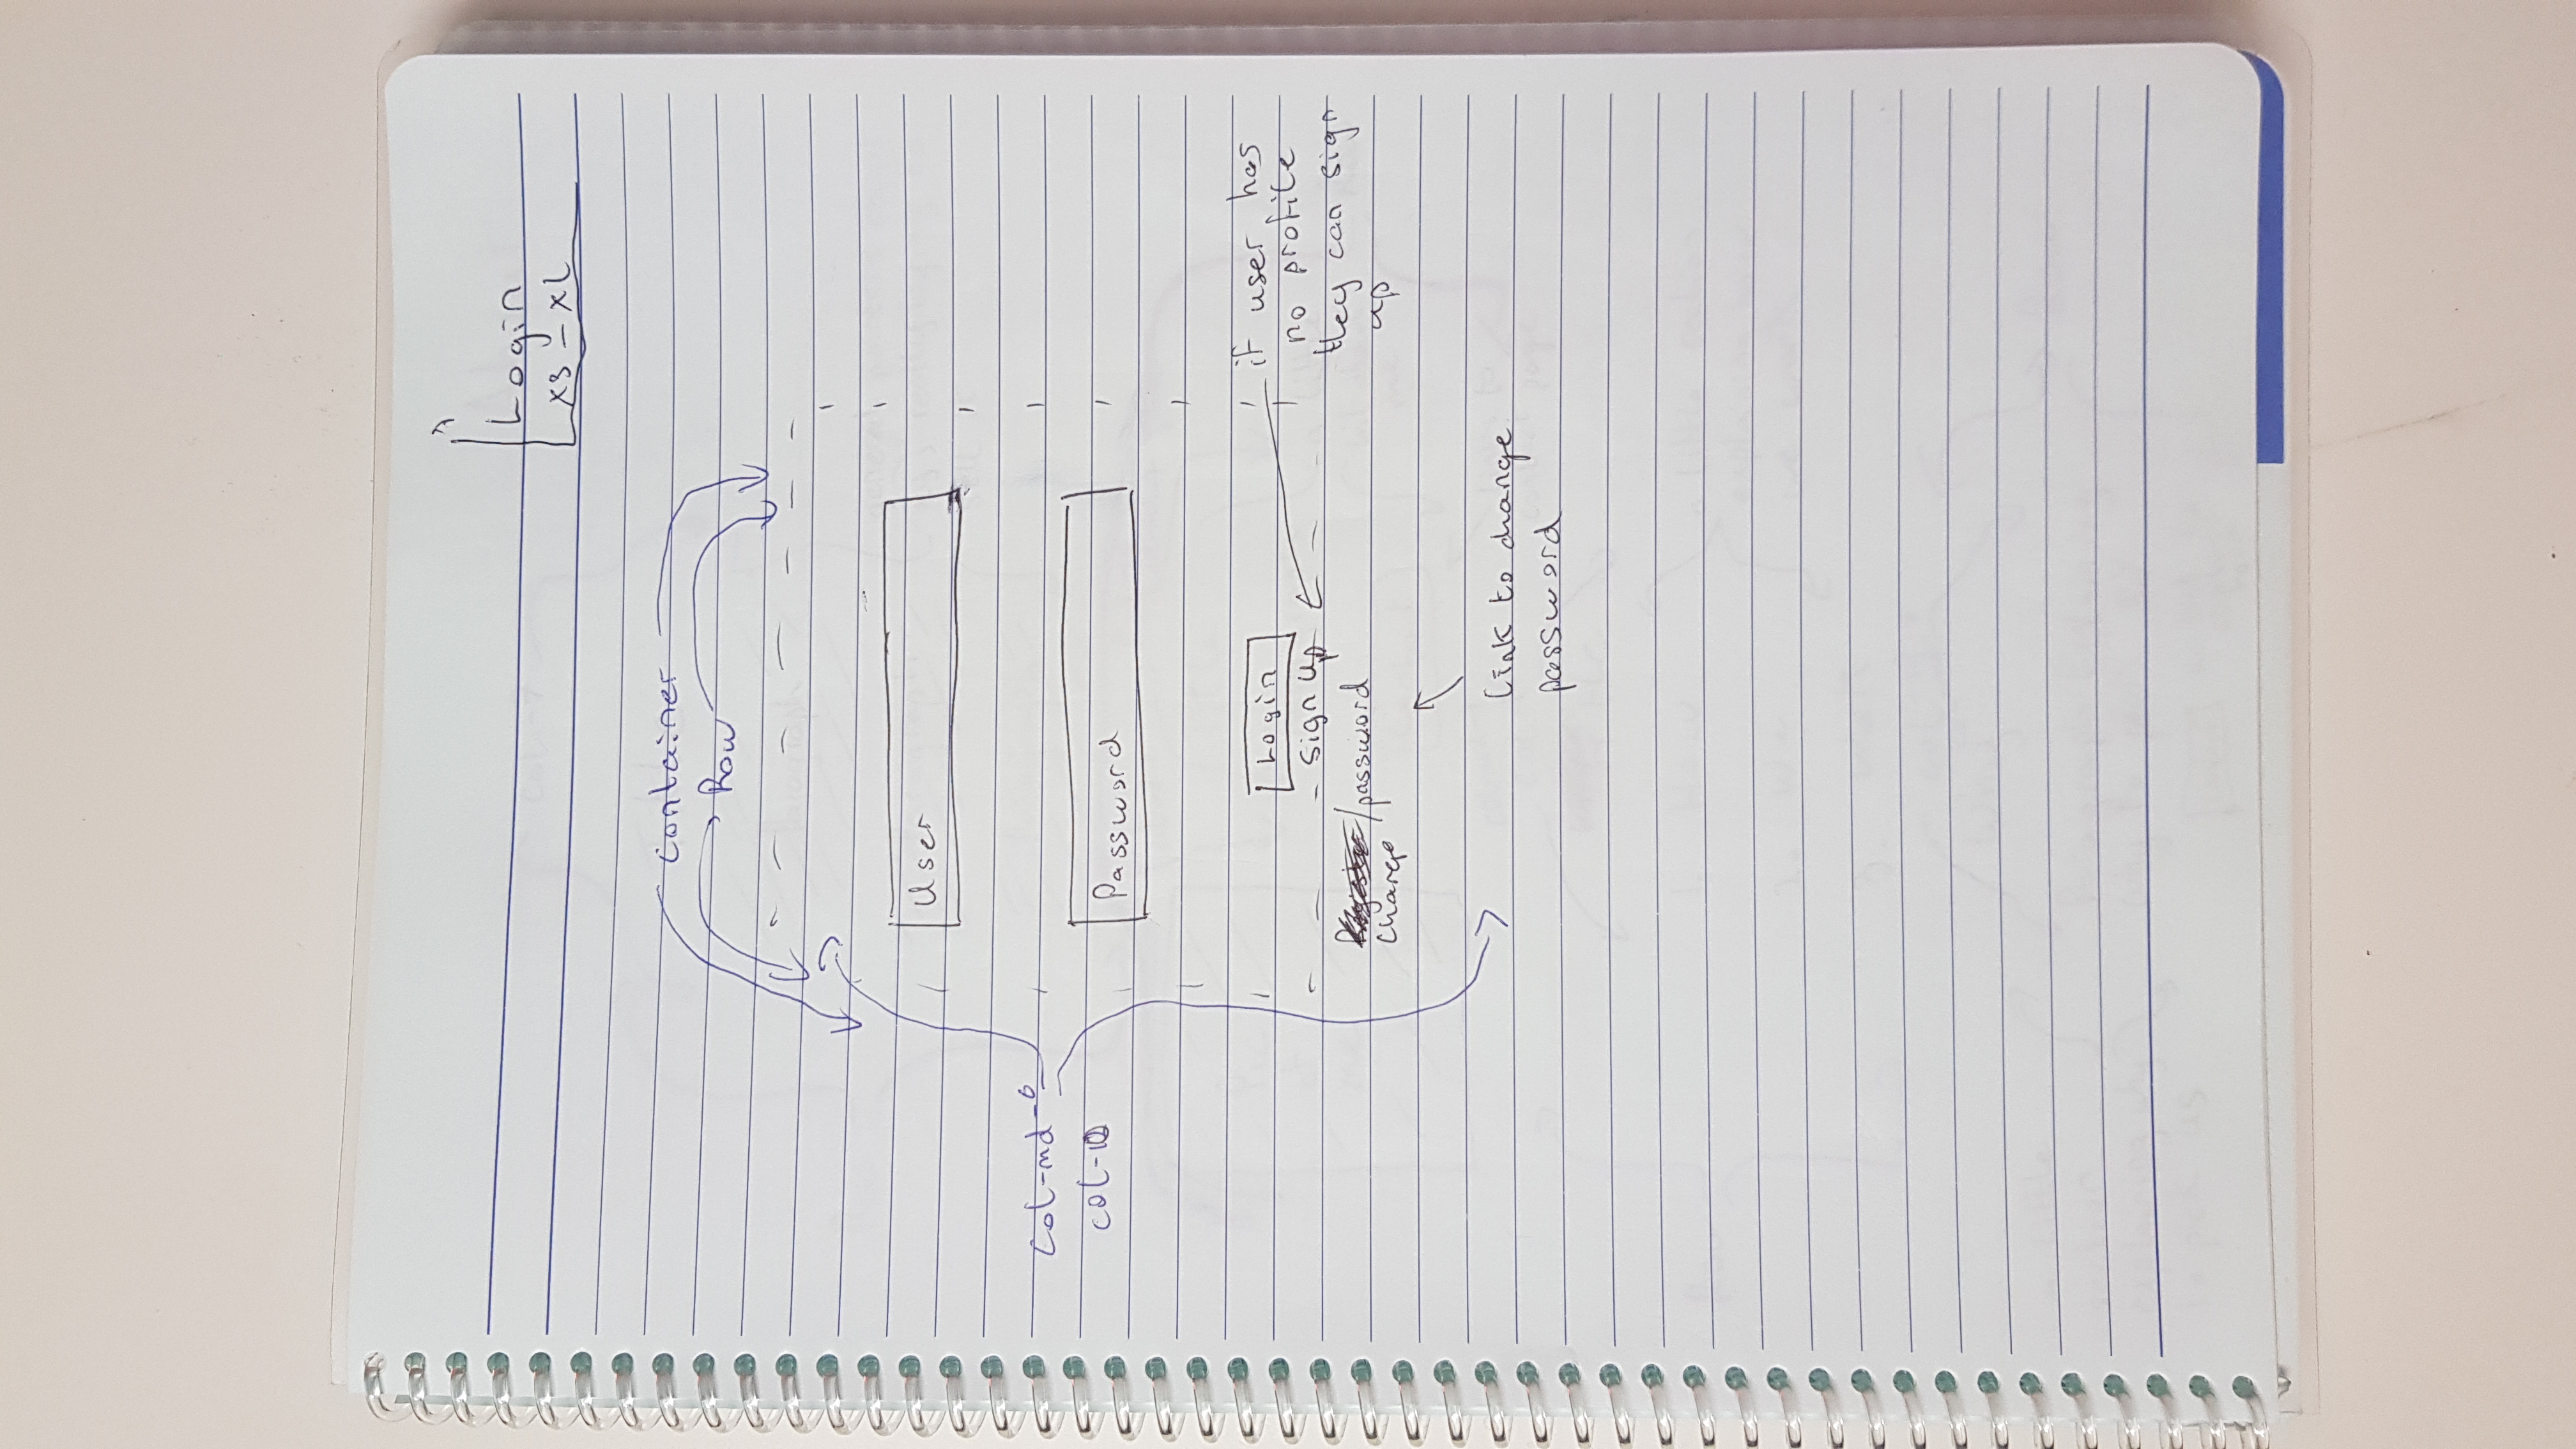 Login
xs - xl
container
Row
User
col-md-6
Password
Login
sign up
if user has
no profile
they can sign
up
/password
change
link to change
password